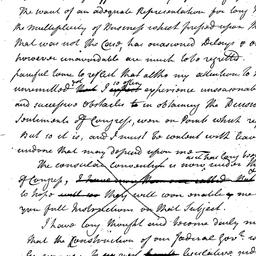 The want of an adequate Representation for long
the multiplicity of Business which pressed upon the
that was not the Case, has occasioned Delays &
however unavoidable are much to be regretted.
painful to me to reflect that altho my attention to
unremitted I so often experience unseasonable
and successive obstacles to in obtaining the Decision
Sentiments of Congress, even on Points which
But so it is, and I must be content with leaving
undone that may depend upon me
and has long been
The consular Convention is now under
of Congress, I have
to hope will soon enable me
you full Instructions on that Subject.
I have long thought and become daily more
that the Construction of our federal Govt is
Legislative